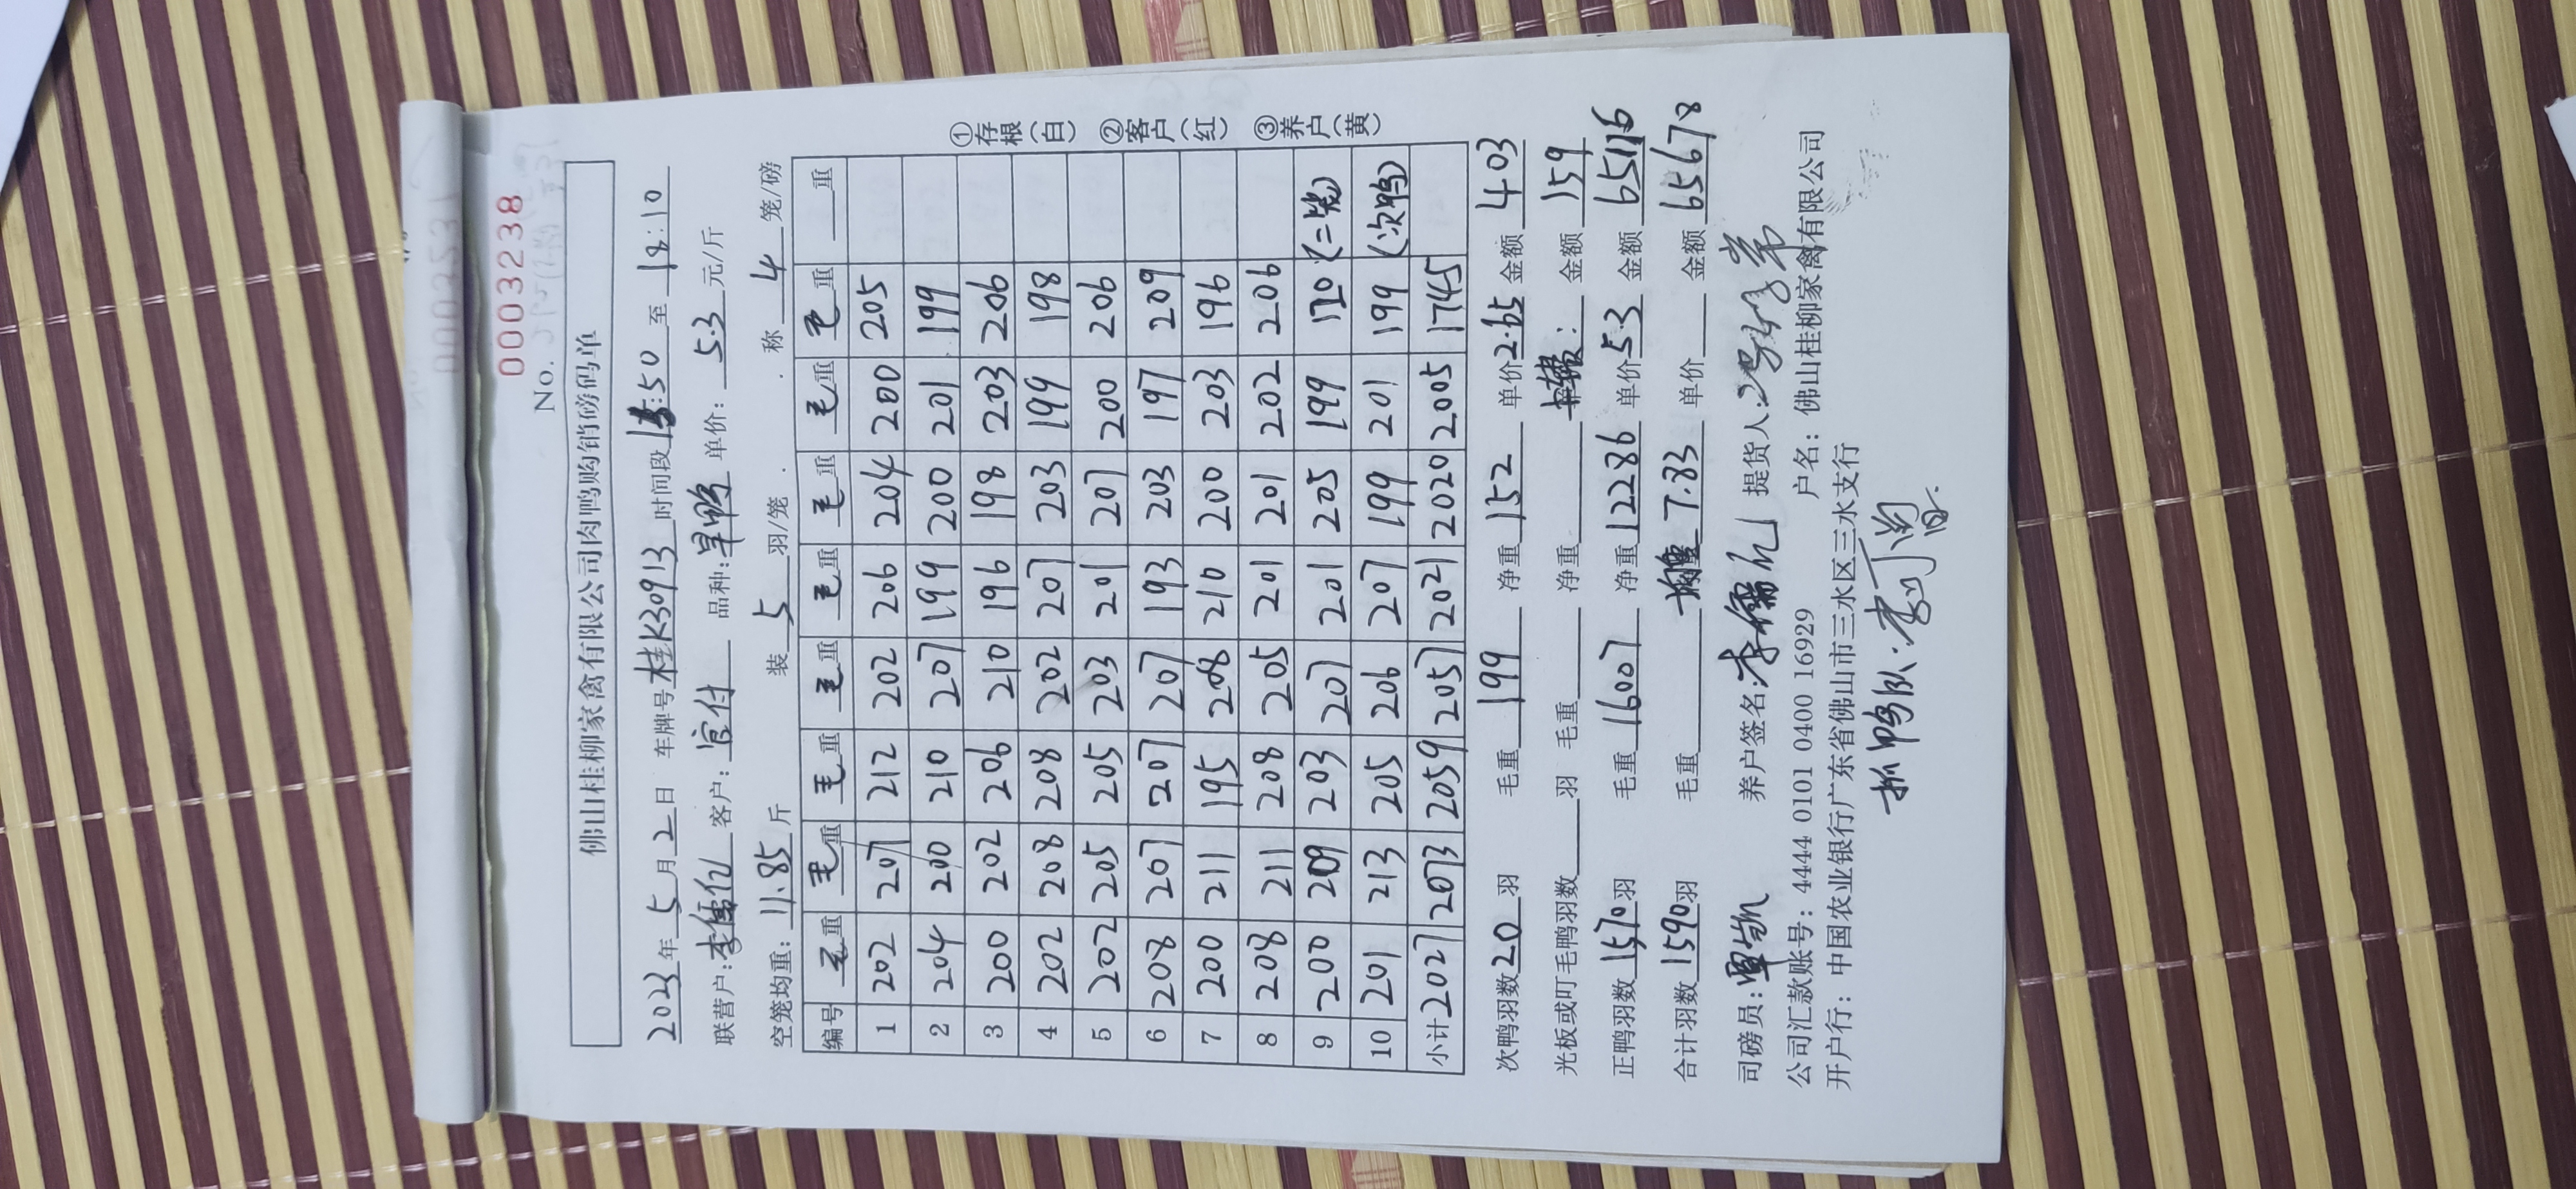 No. 0003238
佛山桂柳家禽有限公司肉鸭购销磅码单
2023年5月2日 车牌号桂K30913时间段15:50至18:10
联营户:李儒亿 客户:宜付 品种:旱鸭 单价:5.3元/斤
空笼均重:11.85斤 装5羽/笼 称4笼/磅
编号 毛重 毛重 毛重 毛重 毛重 毛重 毛重 毛重 重
1 202 207 212 202 206 204 200 205
2 204 200 210 207 199 200 201 199
3 200 202 206 210 196 198 203 206
4 202 208 208 202 207 203 199 198
5 202 205 205 203 201 207 200 206
6 208 207 207 207 193 203 197 209
7 200 211 195 208 210 200 203 196
8 208 211 208 205 201 201 202 206
9 200 209 203 207 201 205 199 120 (二笼)
10 201 213 205 206 207 199 201 199 (次鸭)
小计 2027 2073 2059 2057 2021 2020 2005 1745
①存根(白) ②客户(红) ③养户(黄)
次鸭羽数20羽 毛重199 净重152 单价2.65金额403
光板或叮毛鸭羽数 羽 毛重 净重 : 金额159
正鸭羽数1570羽 毛重16007 净重12286单价5.3金额65116
合计羽数1590羽 毛重 7.83 单价 金额65678
司磅员: 养户签名:李儒亿 提货人:
公司汇款账号:4444 0101 0400 16929 户名:佛山桂柳家禽有限公司
开户行:中国农业银行广东省佛山市三水区三水支行
抓鸭队: